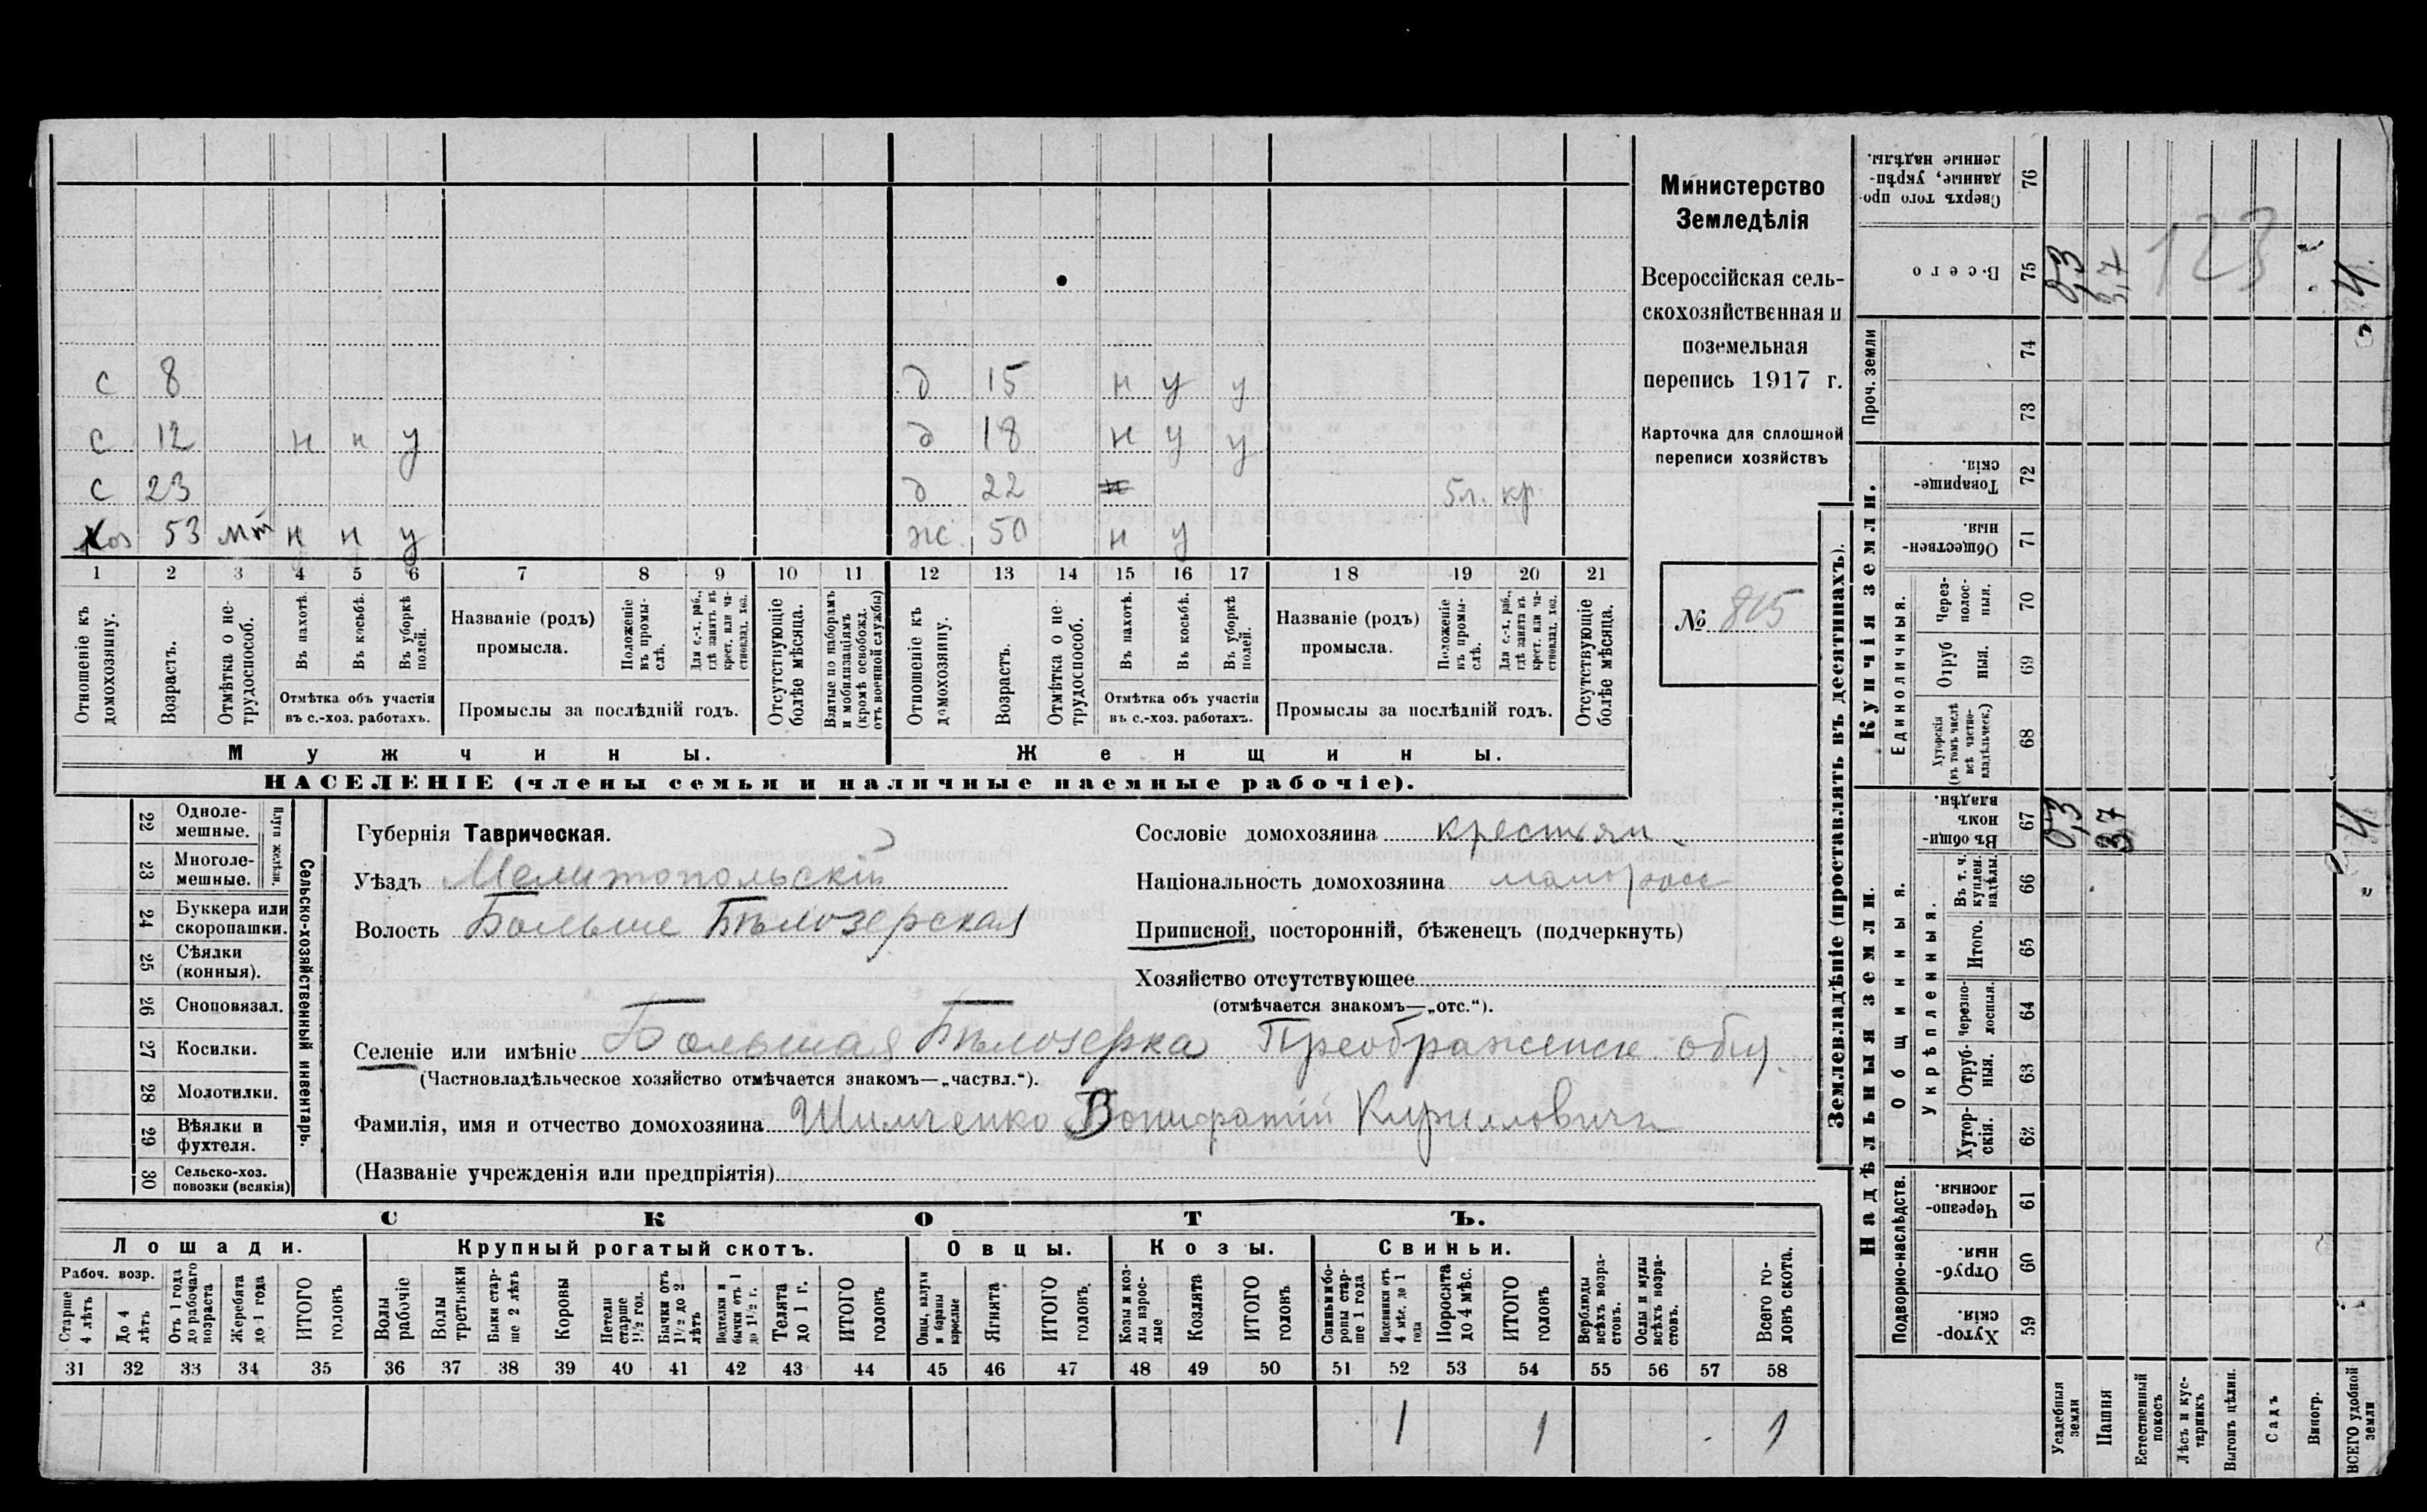 с 8 д 15 н у у
с 12 н н у д 18 н у у
с 23 д 22 5л. кр
Хоз 53 н н у ж. 50 н у
1 2 3 4 5 6 7 8 9 10 11 12 13 14 15 16 17 18 19 20 21
Отношеніе къ домохозяину.
Возрастъ.
Отмѣтка о не-трудоспособ.
Въ пахотѣ.
Въ косьбѣ.
Въ уборкѣ полей.
Отмѣтка объ участіи
въ с.-хоз. работахъ.
Названіе (родъ)
промысла.
Положеніе въ промы-слѣ.
Для с.-х. раб., гдѣ занятъ въ крест. или ча-стновлад. хоз.
Промыслы за послѣдній годъ.
Отсутствующіе болѣе мѣсяца.
Взятые по наборамъ и мобилизаціямъ (кромѣ освобожд. отъ военной службы)
Отношеніе къ домохозяину.
Возрастъ.
Отмѣтка о не-трудоспособ.
Въ пахотѣ.
Въ косьбѣ.
Въ уборкѣ полей.
Отмѣтка объ участіи
въ с.-хоз. работахъ.
Названіе (родъ)
промысла.
Положеніе въ промы-слѣ.
Для с.-х. раб., гдѣ занята въ крест. или ча-стновлад. хоз.
Промыслы за послѣдній годъ.
Отсутствующіе болѣе мѣсяца.
Мужчины. Женщины.
НАСЕЛЕНІЕ (члены семья и наличные наемные рабочіе).
Министерство
Земледѣлія
Всероссійская сель-
скохозяйственная и
поземельная
перепись 1917 г.
Карточка для сплошной
переписи хозяйствъ
№ 815
Сельско-хозяйственный инвентарь.
Плуги желѣзн.
22 Одноле-мешные.
23 Многоле-мешные.
24 Буккера или скоропашки.
25 Сѣялки (конныя).
26 Сноповязал.
27 Косилки.
28 Молотилки.
29 Вѣялки и фухтеля.
30 Сельско-хоз. повозки (всякія)
Губернія Таврическая.
Уѣздъ Мелитопольскій
Волость Больше Бѣлозерская
Сословіе домохозяина крестьян
Національность домохозяина малоросс
Приписной, посторонній, бѣженецъ (подчеркнуть)
Хозяйство отсутствующее
(отмѣчается знакомъ—„отс.“).
Селеніе или имѣніе Большая Бѣлозерка Преображенск. общ.
(Частновладѣльческое хозяйство отмѣчается знакомъ—„частвл.“).
Фамилія, имя и отчество домохозяина Шимченко Вонифатій Кирилловичъ
(Названіе учрежденія или предпріятія)
СКОТЪ.
Лошади. Крупный рогатый скотъ. Овцы. Козы. Свиньи.
Рабоч. возр.
Старше 4 лѣтъ
До 4 лѣтъ
Отъ 1 года до рабочаго возраста
Жеребята до 1 года
ИТОГО головъ
Волы рабочіе
Волы третьяки
Быки стар-ше 2 лѣтъ
Коровы
Нетели старше 1½ год.
Бычки отъ 1½ до 2 лѣтъ
Подтелки и бычки отъ 1 до 1½ г.
Телята до 1 г.
ИТОГО головъ
Овцы, валухи и бараны взрослые
Ягнята
ИТОГО головъ.
Козы и коз-лы взрос-лые
Козлята
ИТОГО головъ
Свиньи и бо-ровы стар-ше 1 года
Подсвинки отъ 4 мѣс. до 1 года
Поросята до 4 мѣс.
ИТОГО головъ
Верблюды всѣхъ возра-стовъ.
Ослы и мулы всѣхъ возра-стовъ.
Всего го-ловъ скота.
31 32 33 34 35 36 37 38 39 40 41 42 43 44 45 46 47 48 49 50 51 52 53 54 55 56 57 58
1 1 1
Землевладѣніе (проставлять въ десятинахъ).
Надѣльныя земли. Купчія земли. Проч. земли
Подворно-наслѣдств.
Общинныя.
Укрѣпленныя.
Единоличныя.
Сверхъ того про-данные, укрѣп-ленные надѣлы. 76
Всего 75 0,3 3,7 4.
123
74
73
Товарище-скія. 72
Обществен-ныя. 71
Через-полос-ныя. 70
Отруб ныя. 69
Хуторскія (въ томъ числѣ всѣ частно-владѣльческ.) 68
Въ общи-номъ владѣн. 67 0,3 3,7 4
Въ т. ч. куплен. надѣлы. 66
Итого. 65
Черезпо-лосныя. 64
Отруб-ныя. 63
Хутор-скія. 62
Черезпо-лосныя. 61
Отруб-ныя. 60
Хутор-скія. 59
Усадебныя земли
Пашня
Естественный покосъ
Лѣсъ и кус-тарникъ
Выгонъ цѣлин.
Садъ
Виногр.
ВСЕГО удобной земли